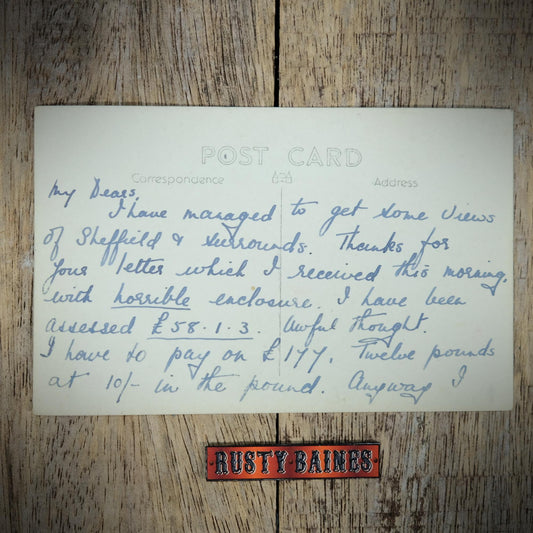 POST CARD
Correspondence
Address
My Dears,
I have managed to get some views
of Sheffield & surrounds. Thanks for
your letter which I received this morning,
with horrible enclosure. I have been
assessed £58.1.3. Awful thought.
I have to pay on £177. Twelve pounds
at 10/- in the pound. Anyway I
RUSTY·BAINES